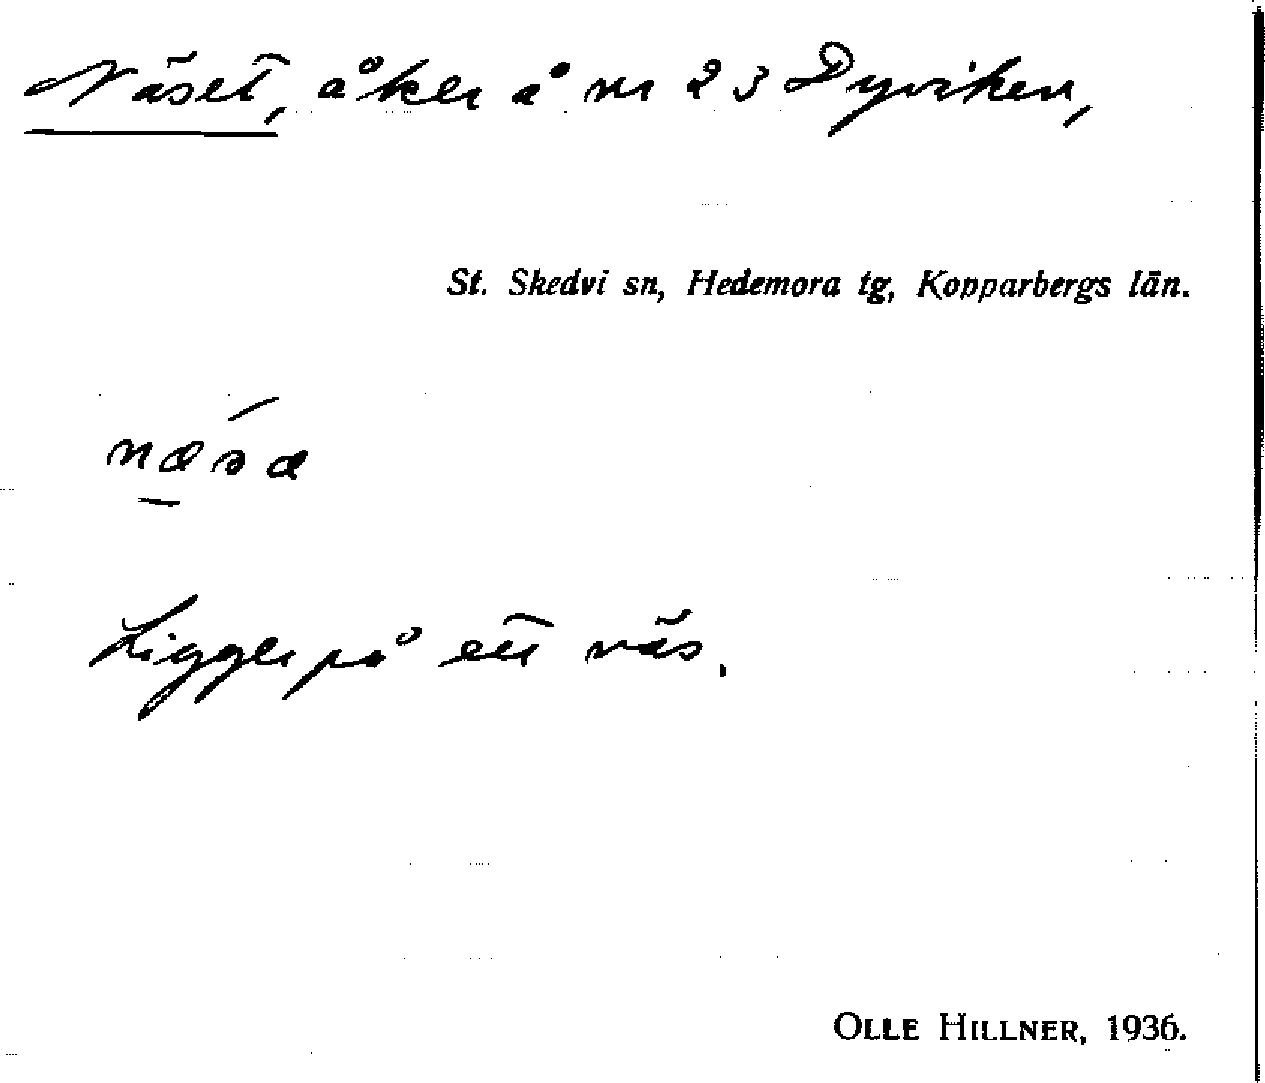 Näset, åker å nr 23 Dyviken,
St. Skedvi sn, Hedemora tg, Kopparbergs län.
næsæ
Ligger på ett näs.
OLLE HILLNER, 1936.